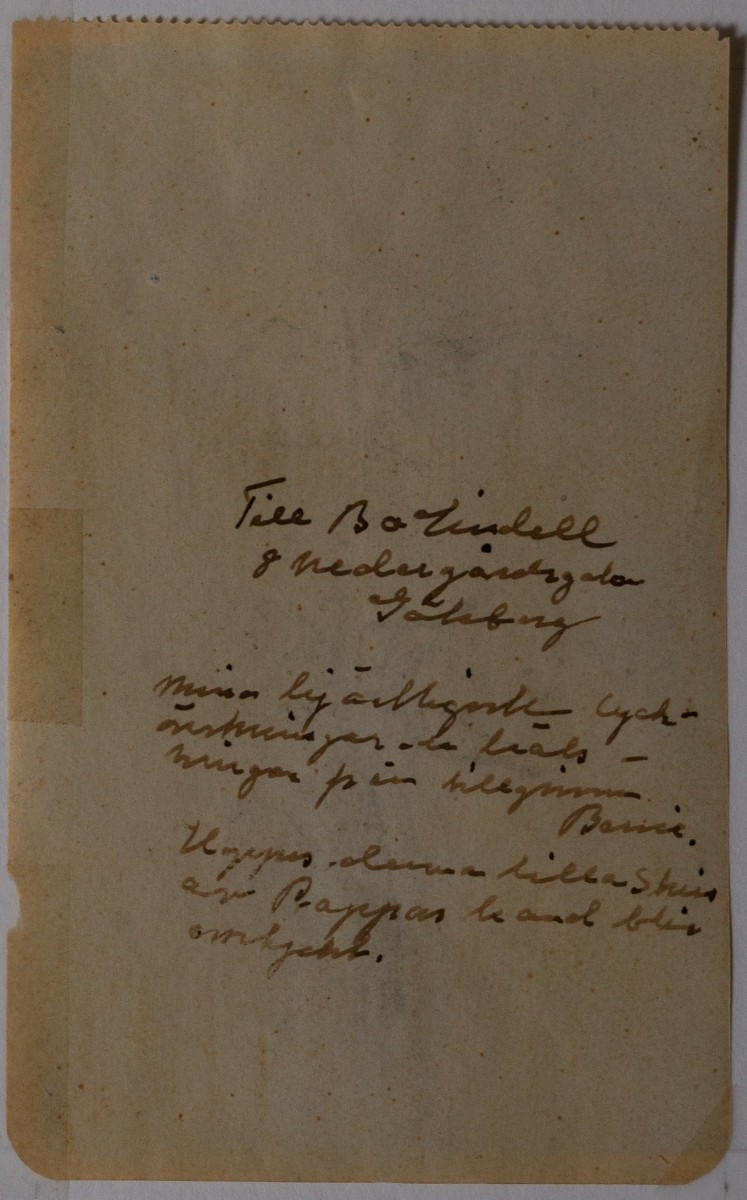 Till Bo Lindell
8 Nedergårdsgatan
Göteborg
Mina hjärtligaste lyck-
önskningar o häls-
ningar från
Hoppas denna lilla skiss
av Pappas hand blir
omtyckt.